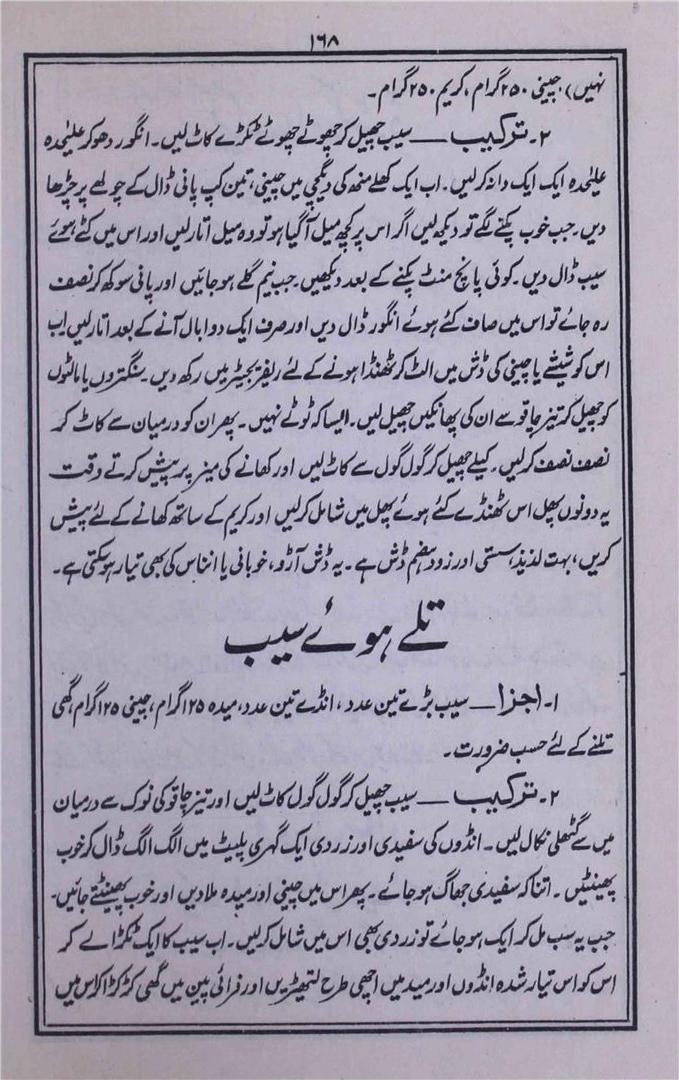 ۱۶۸
نہیں) چینی ۲۵۰ گرام، کریم ۲۵۰ گرام۔
۲۔ ترکیب ــــ سیب چھیل کر چھوٹے چھوٹے ٹکڑے کاٹ لیں۔ انگور دھو کر علیٰحدہ
علیٰحدہ ایک ایک دانہ کر لیں۔ اب ایک کھلے منھ کی دیگچی میں چینی، تین کپ پانی ڈال کے چولھے پر چڑھا
دیں۔ جب خوب پکنے لگے تو دیکھ لیں اگر اس پر کچھ میل آ گیا ہو تو وہ میل اتار لیں اور اس میں کٹے ہوئے
سیب ڈال دیں۔ کوئی پانچ منٹ پکنے کے بعد دیکھیں۔ جب نیم گلے ہو جائیں اور پانی سوکھ کر نصف
رہ جائے تو اس میں صاف کئے ہوئے انگور ڈال دیں اور صرف ایک دو ابال آنے کے بعد اتار لیں۔ اب
اس کو شیشے یا چینی کی ڈش میں الٹ کر ٹھنڈا ہونے کے لئے ریفریجیٹر میں رکھ دیں۔ سنگتروں یا مالٹوں
کو چھیل کر تیز چاقو سے ان کی پھانکیں چھیل لیں۔ ایسا کہ ٹوٹے نہیں۔ پھر ان کو درمیان سے کاٹ کر
نصف نصف کر لیں۔ کیلے چھیل کر گول گول سے کاٹ لیں اور کھانے کی میز پر پیش کرتے وقت
یہ دونوں پھل اس ٹھنڈے کئے ہوئے پھل میں شامل کر لیں اور کریم کے ساتھ کھانے کے لئے پیش
کریں، بہت لذیذ، سستی اور زود ہضم ڈش ہے۔ یہ ڈش آڑو، خوبانی یا انناس کی بھی تیار ہو سکتی ہے۔
تلے ہوئے سیب
۱۔ اجزا ــــ سیب بڑے تین عدد، انڈے تین عدد، میدہ ۱۲۵ گرام، چینی ۱۲۵ گرام، گھی
تلنے کے لئے حسب ضرورت۔
۲۔ ترکیب ــــ سیب چھیل کر گول گول کاٹ لیں اور تیز چاقو کی نوک سے درمیان
میں سے گٹھلی نکال لیں۔ انڈوں کی سفیدی اور زردی ایک گہری پلیٹ میں الگ الگ ڈال کر خوب
پھینٹیں۔ اتنا کہ سفیدی جھاگ ہو جائے۔ پھر اس میں چینی اور میدہ ملا دیں اور خوب پھینٹتے جائیں۔
جب یہ سب مل کر ایک ہو جائے تو زردی بھی اس میں شامل کر لیں۔ اب سیب کا ایک ٹکڑا لے کر
اس کو اس تیار شدہ انڈوں اور میدے میں اچھی طرح لتھیڑیں اور فرائی پین میں گھی کڑکڑا کر اس میں